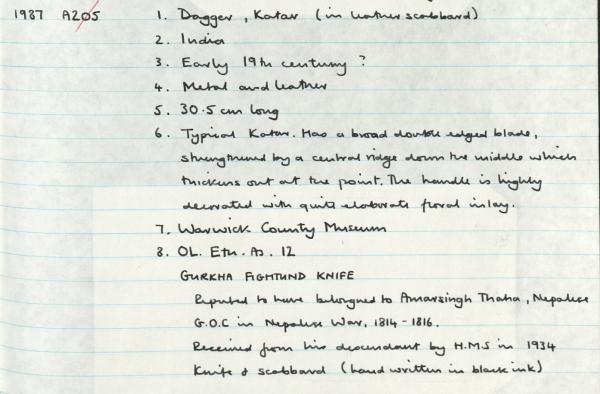 1987 A205 1. Dagger, Katar (in leather scabbard)
2. India
3. Early 19th century ?
4. Metal and leather
5. 30.5 cm long
6. Typical Katar. Has a broad double edged blade,
strengthened by a central ridge down the middle which
thickens out at the point. The handle is highly
decorated with quite elaborate floral inlay.
7. Warwick County Museum
8. OL. Eth. As. 12
GURKHA FIGHTUND KNIFE
Reputed to have belongned to Amarsingh Thaha, Nepalese
G.O.C in Nepalese War, 1814 - 1816.
Received from his descendant by H.M.S in 1934
Knife & scabbard (hand written in black ink)